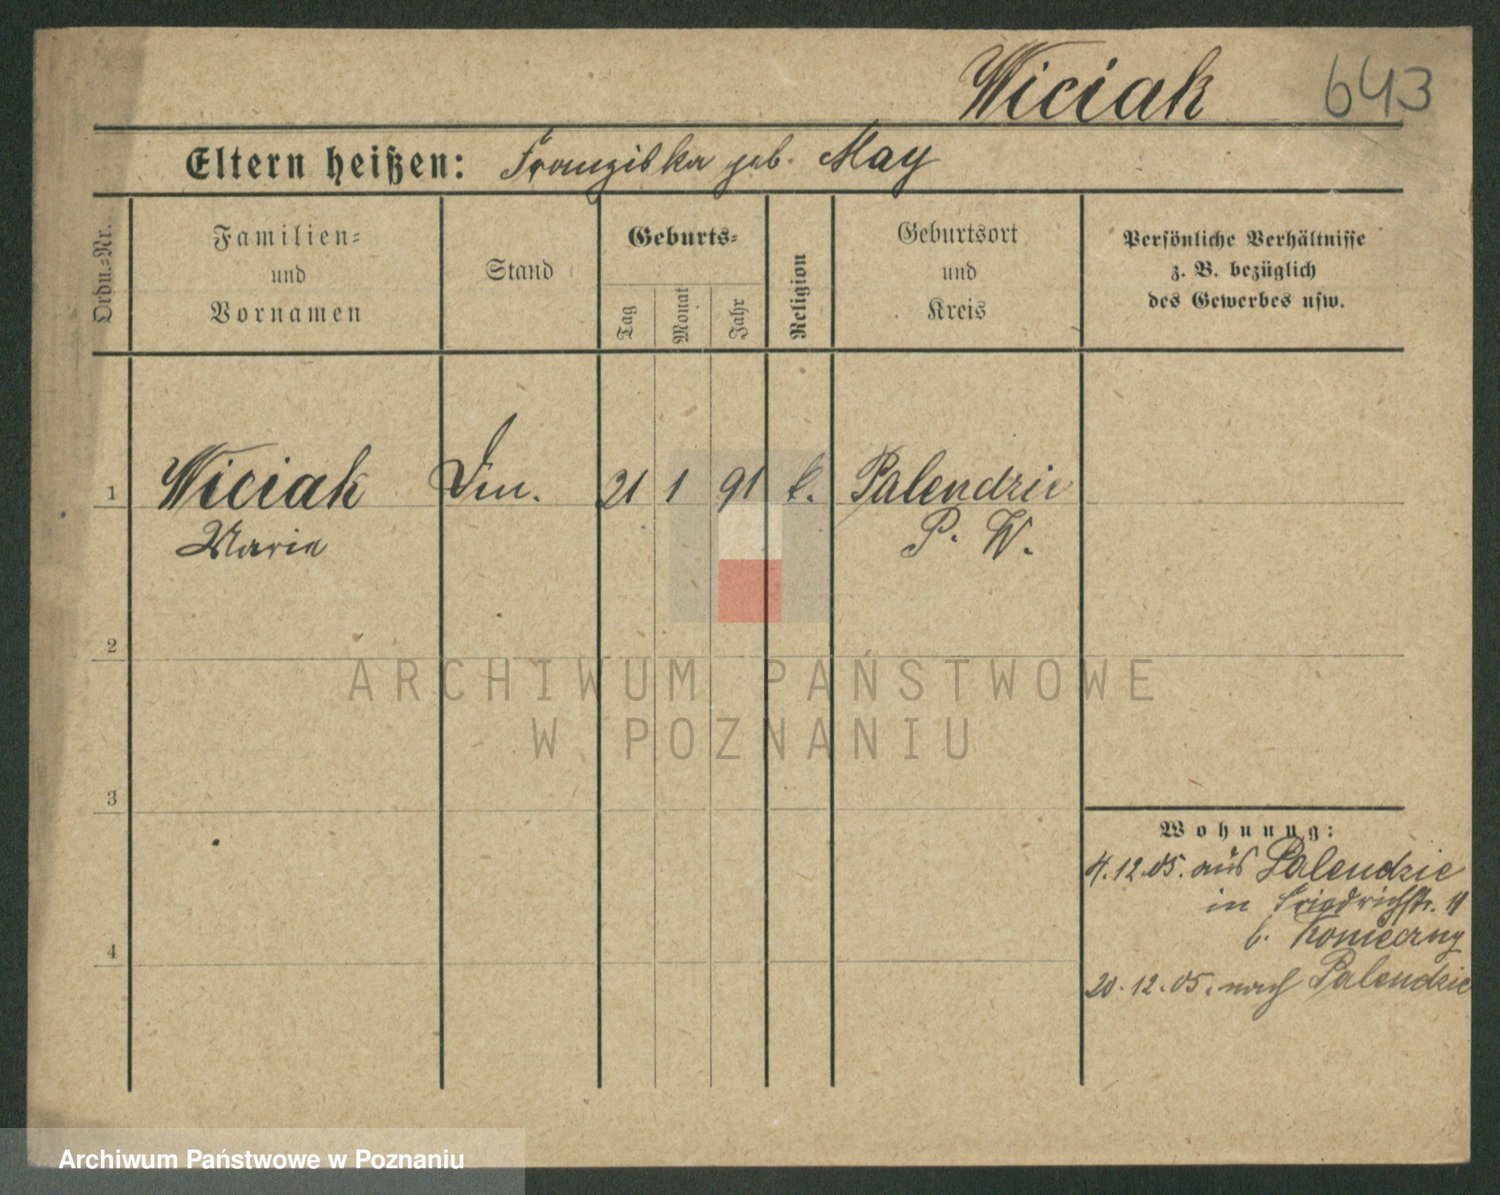 Wiciak 643
Eltern heißen: Franziska geb. May
Ordn.-Nr.
Familien-
und
Vornamen
Stand
Geburts-
Tag
Monat
Jahr
Religion
Geburtsort
und
Kreis
Persönliche Verhältnisse
z. B. bezüglich
des Gewerbes usw.
1 Wiciak 21 1 91 k. Palendzie
Marie P. W.
2
ARCHIWUM PAŃSTWOWE
W POZNANIU
3
Wohnung:
4.12.05. aus Palendzie
in Friedrichstr. 11
b. Konieczny
4
20.12.05. nach Palendzie
Archiwum Państwowe w Poznaniu